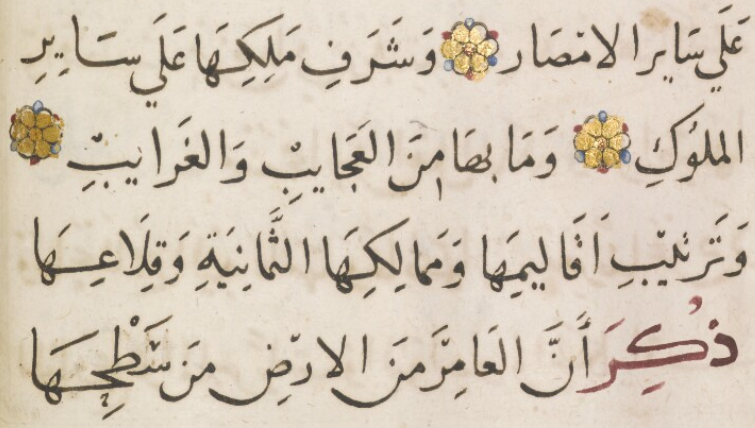 عَلَي سَايرا لامصَار وَشَرَفِ مَلِكِهَا عَلَي سَايِرِ
الملوُكِ وَمَا بهَا مِنَ العَجَايبِ وَالغَرَايبِ
وَتَرتيبِ اَقَاليمِهَا وَممَالِكِهَا الثَّمَانِيَةِ وَقِلَاعِهَا
ذُكِرَ أَنَّ العَامِرَ مَنَ الارضِ مِن سَطْحِهَا